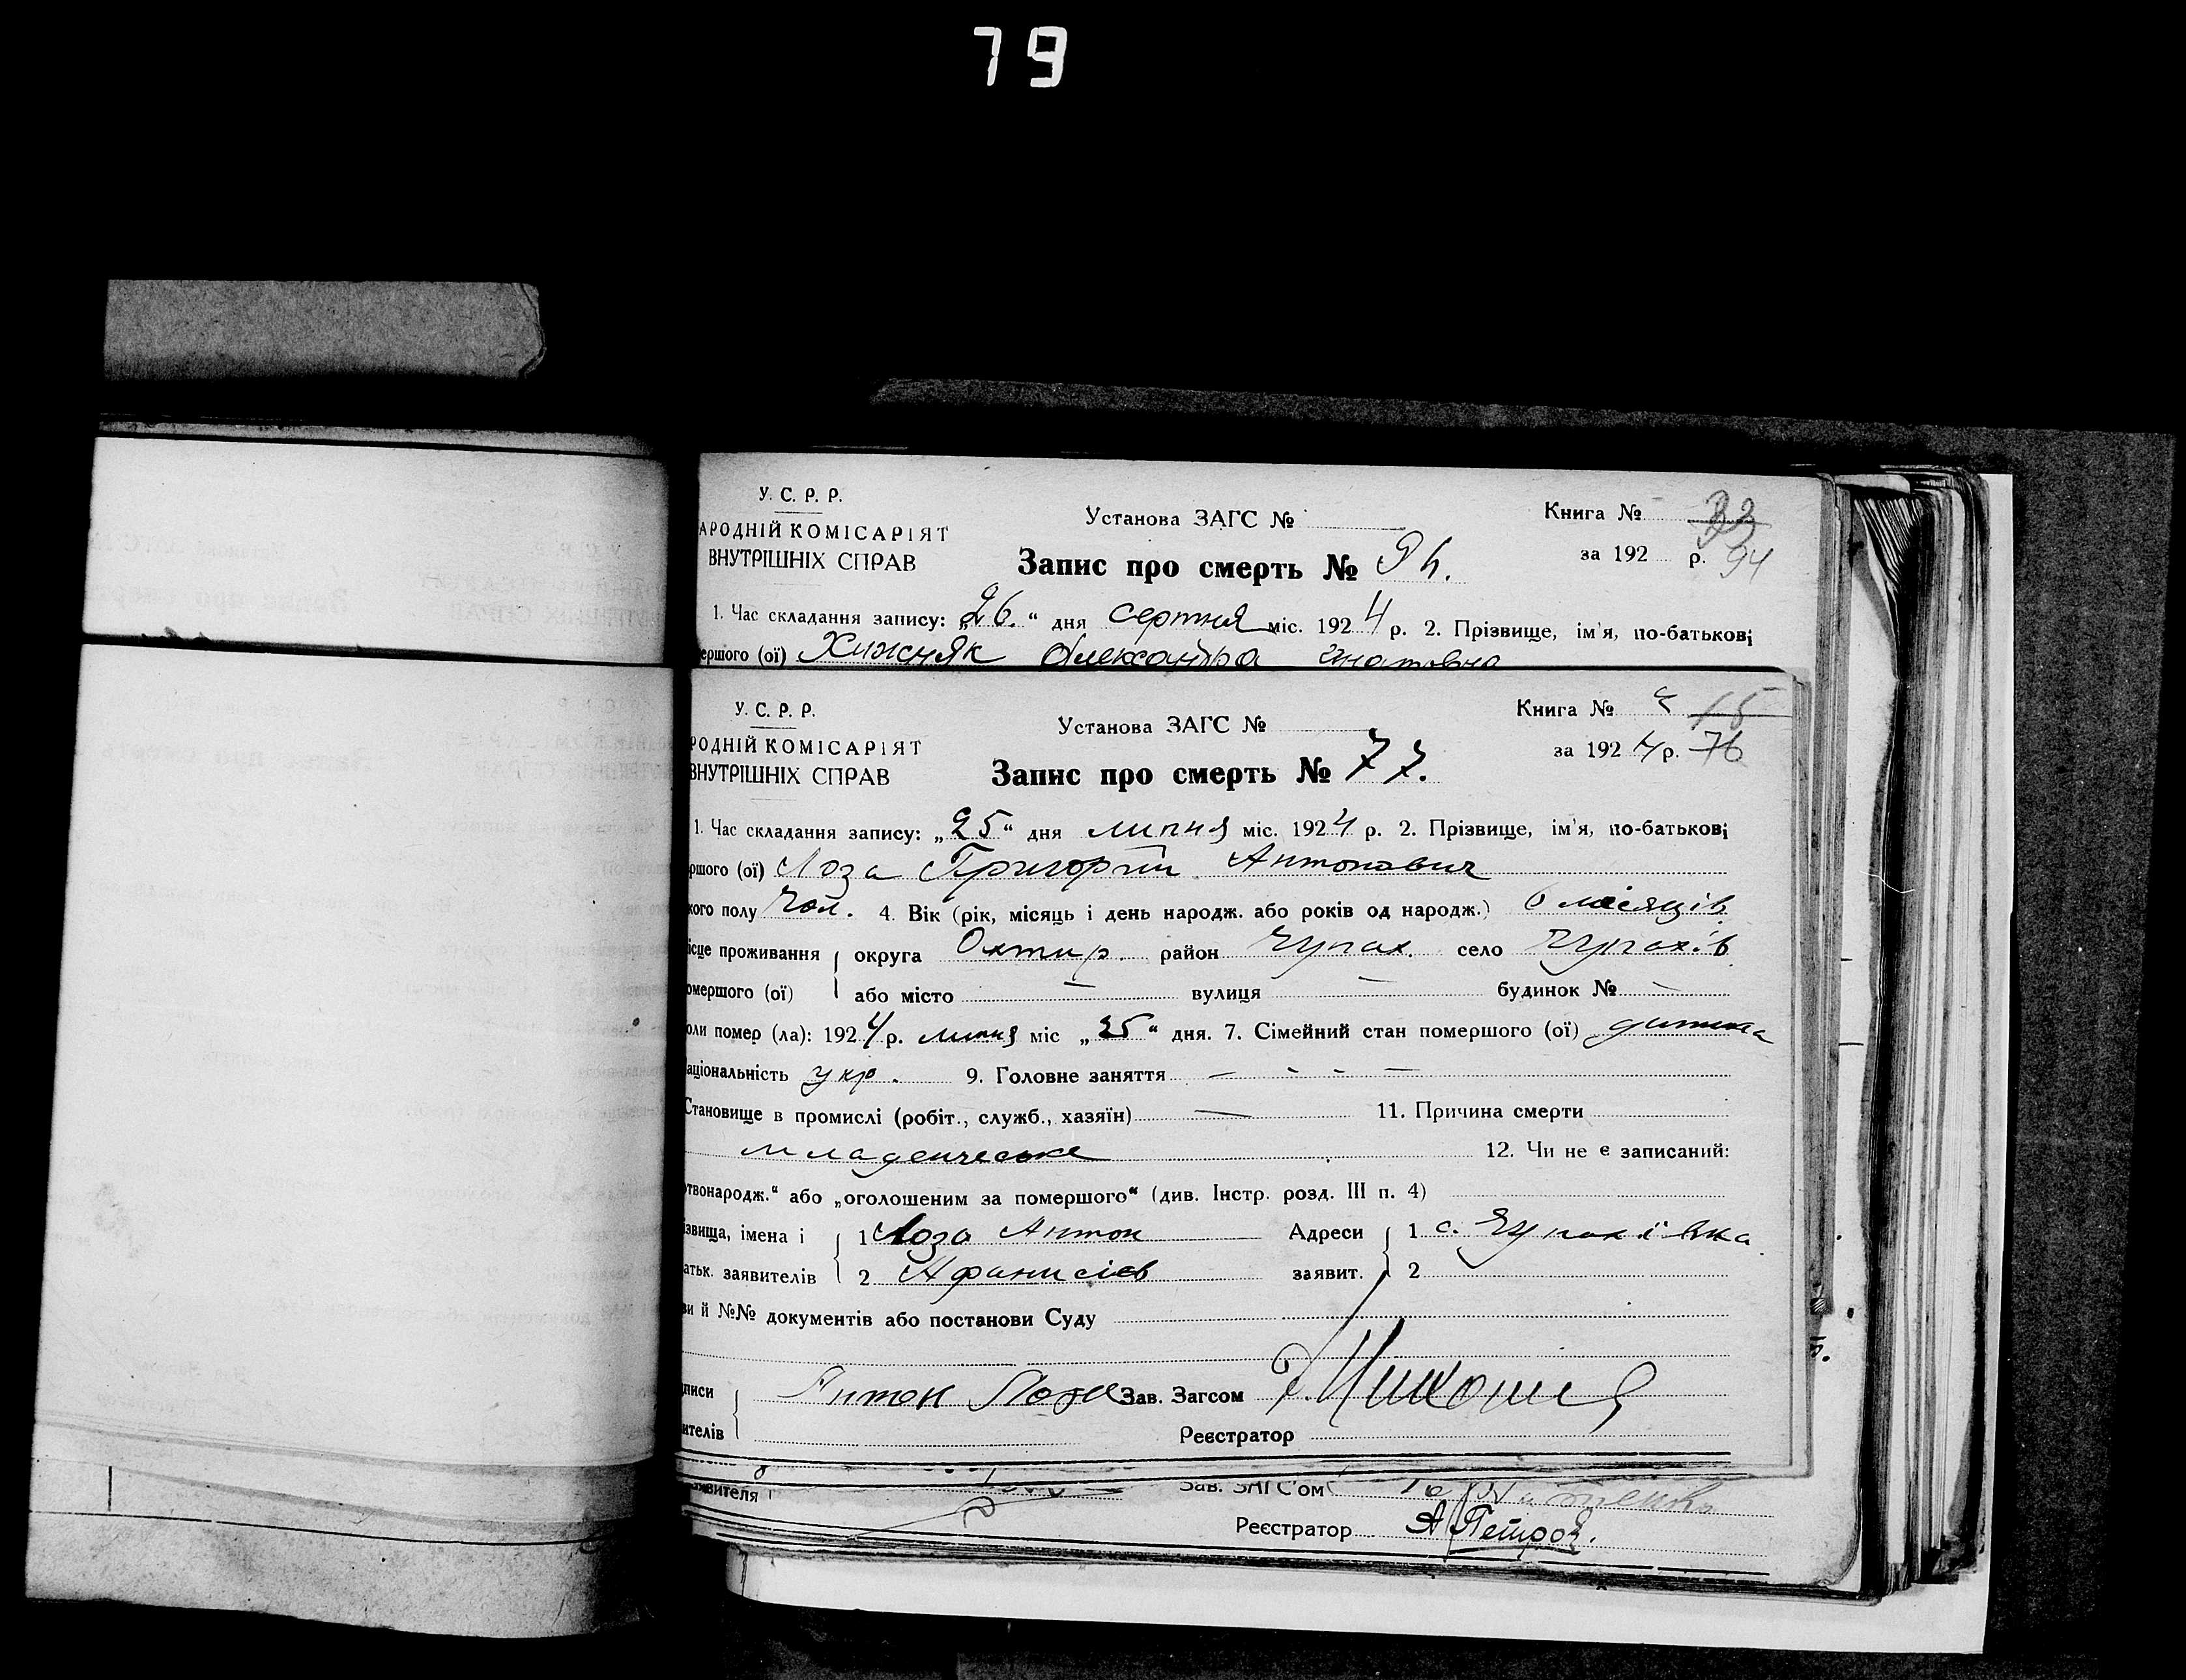 79
У. С. Р. Р.
АРОДНІЙ КОМІСАРІЯТ
ВНУТРІШНІХ СПРАВ
Установа ЗАГС №
Книга № 33
за 192 р. 94
Запис про смерть № 94.
1. Час складання запису: „26.“ дня серпня міс. 1924 р. 2. Прізвище, ім'я, по-батькові
ершого (ої) Хижняк Олександра Гнатовна
У. С. Р. Р.
РОДНІЙ КОМІСАРІЯТ
ВНУТРІШНІХ СПРАВ
Установа ЗАГС №
Книга № 15
за 1924 р. 76
Запис про смерть № 77.
1. Час складання запису: „25“ дня липня міс. 1924 р. 2. Прізвище, ім'я, по-батькові
ршого (ої) Лоза Григорій Антонович
кого полу чол. 4. Вік (рік, місяць і день народж. або років од народж.) 6 місяців
ісце проживання округа Охтир. район Чупах. село Чупахів
омершого (ої) або місто — вулиця — будинок № —
оли помер (ла): 1924 р. липня міс „25“ дня. 7. Сімейний стан помершого (ої) дитина
аціональність укр. 9. Головне заняття — - - —
Становище в промислі (робіт., служб., хазяїн) — 11. Причина смерти
младенческе 12. Чи не є записаний:
ртвонародж.“ або „оголошеним за помершого“ (див. Інстр. розд. III п. 4)
ізвища, імена і 1 Лоза Антон Адреси 1 с. Чупахівка
атьк. заявителів 2 Афанасієв заявит. 2
ви й №№ документів або постанови Суду
дписи Антон Лоза Зав. Загсом
ителів Реєстратор
явителя Зав. ЗАГС'ом
Реєстратор А Петров.